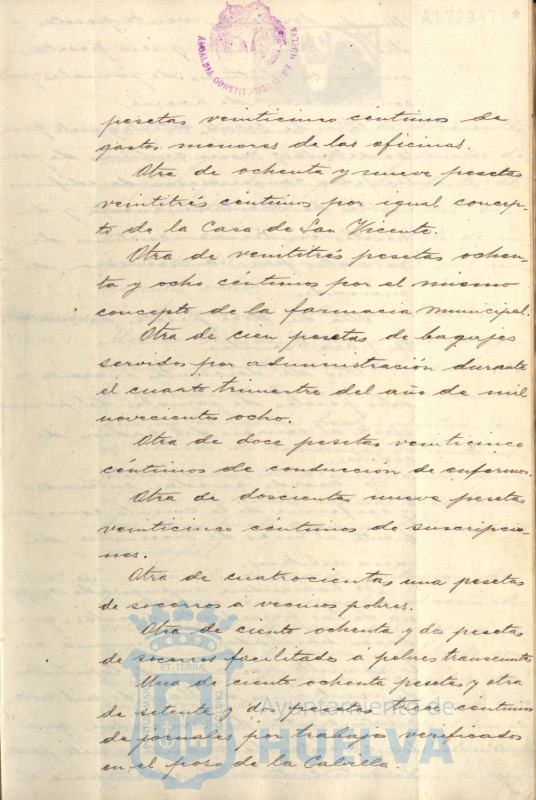 A1.729.471*
ALCALDÍA CONSTITUCIONAL DE HUELVA
pesetas veinticinco centimos de
gastos menores de las oficinas.
Otra de ochenta y nueve pesetas
veintitrés céntimos por igual concep-
to de la Casa de San Vicente.
Otra de veintitrés pesetas ochen-
ta y ocho céntimos por el mismo
concepto de la farmacia municipal.
Otra de cien pesetas de bagajes
servidos por administración durante
el cuarto trimestre del año de mil
novecientos ocho.
Otra de doce pesetas veinticinco
céntimos de conducción de enfermos.
Otra de doscientas nueve pesetas
veinticinco céntimos de suscripcio-
nes.
Otra de cuatrocientas una pesetas
de socorros á vecinos pobres.
Otra de ciento ochenta y dos pesetas
de socorros facilitados á pobres transeuntes
Una de ciento ochenta pesetas y otra
de setenta y dos pesetas trece centimos
de jornales por trabajos verificados
en el pozo de la Calvilla.
ET TERRÆ
Ayuntamiento de
HUELVA